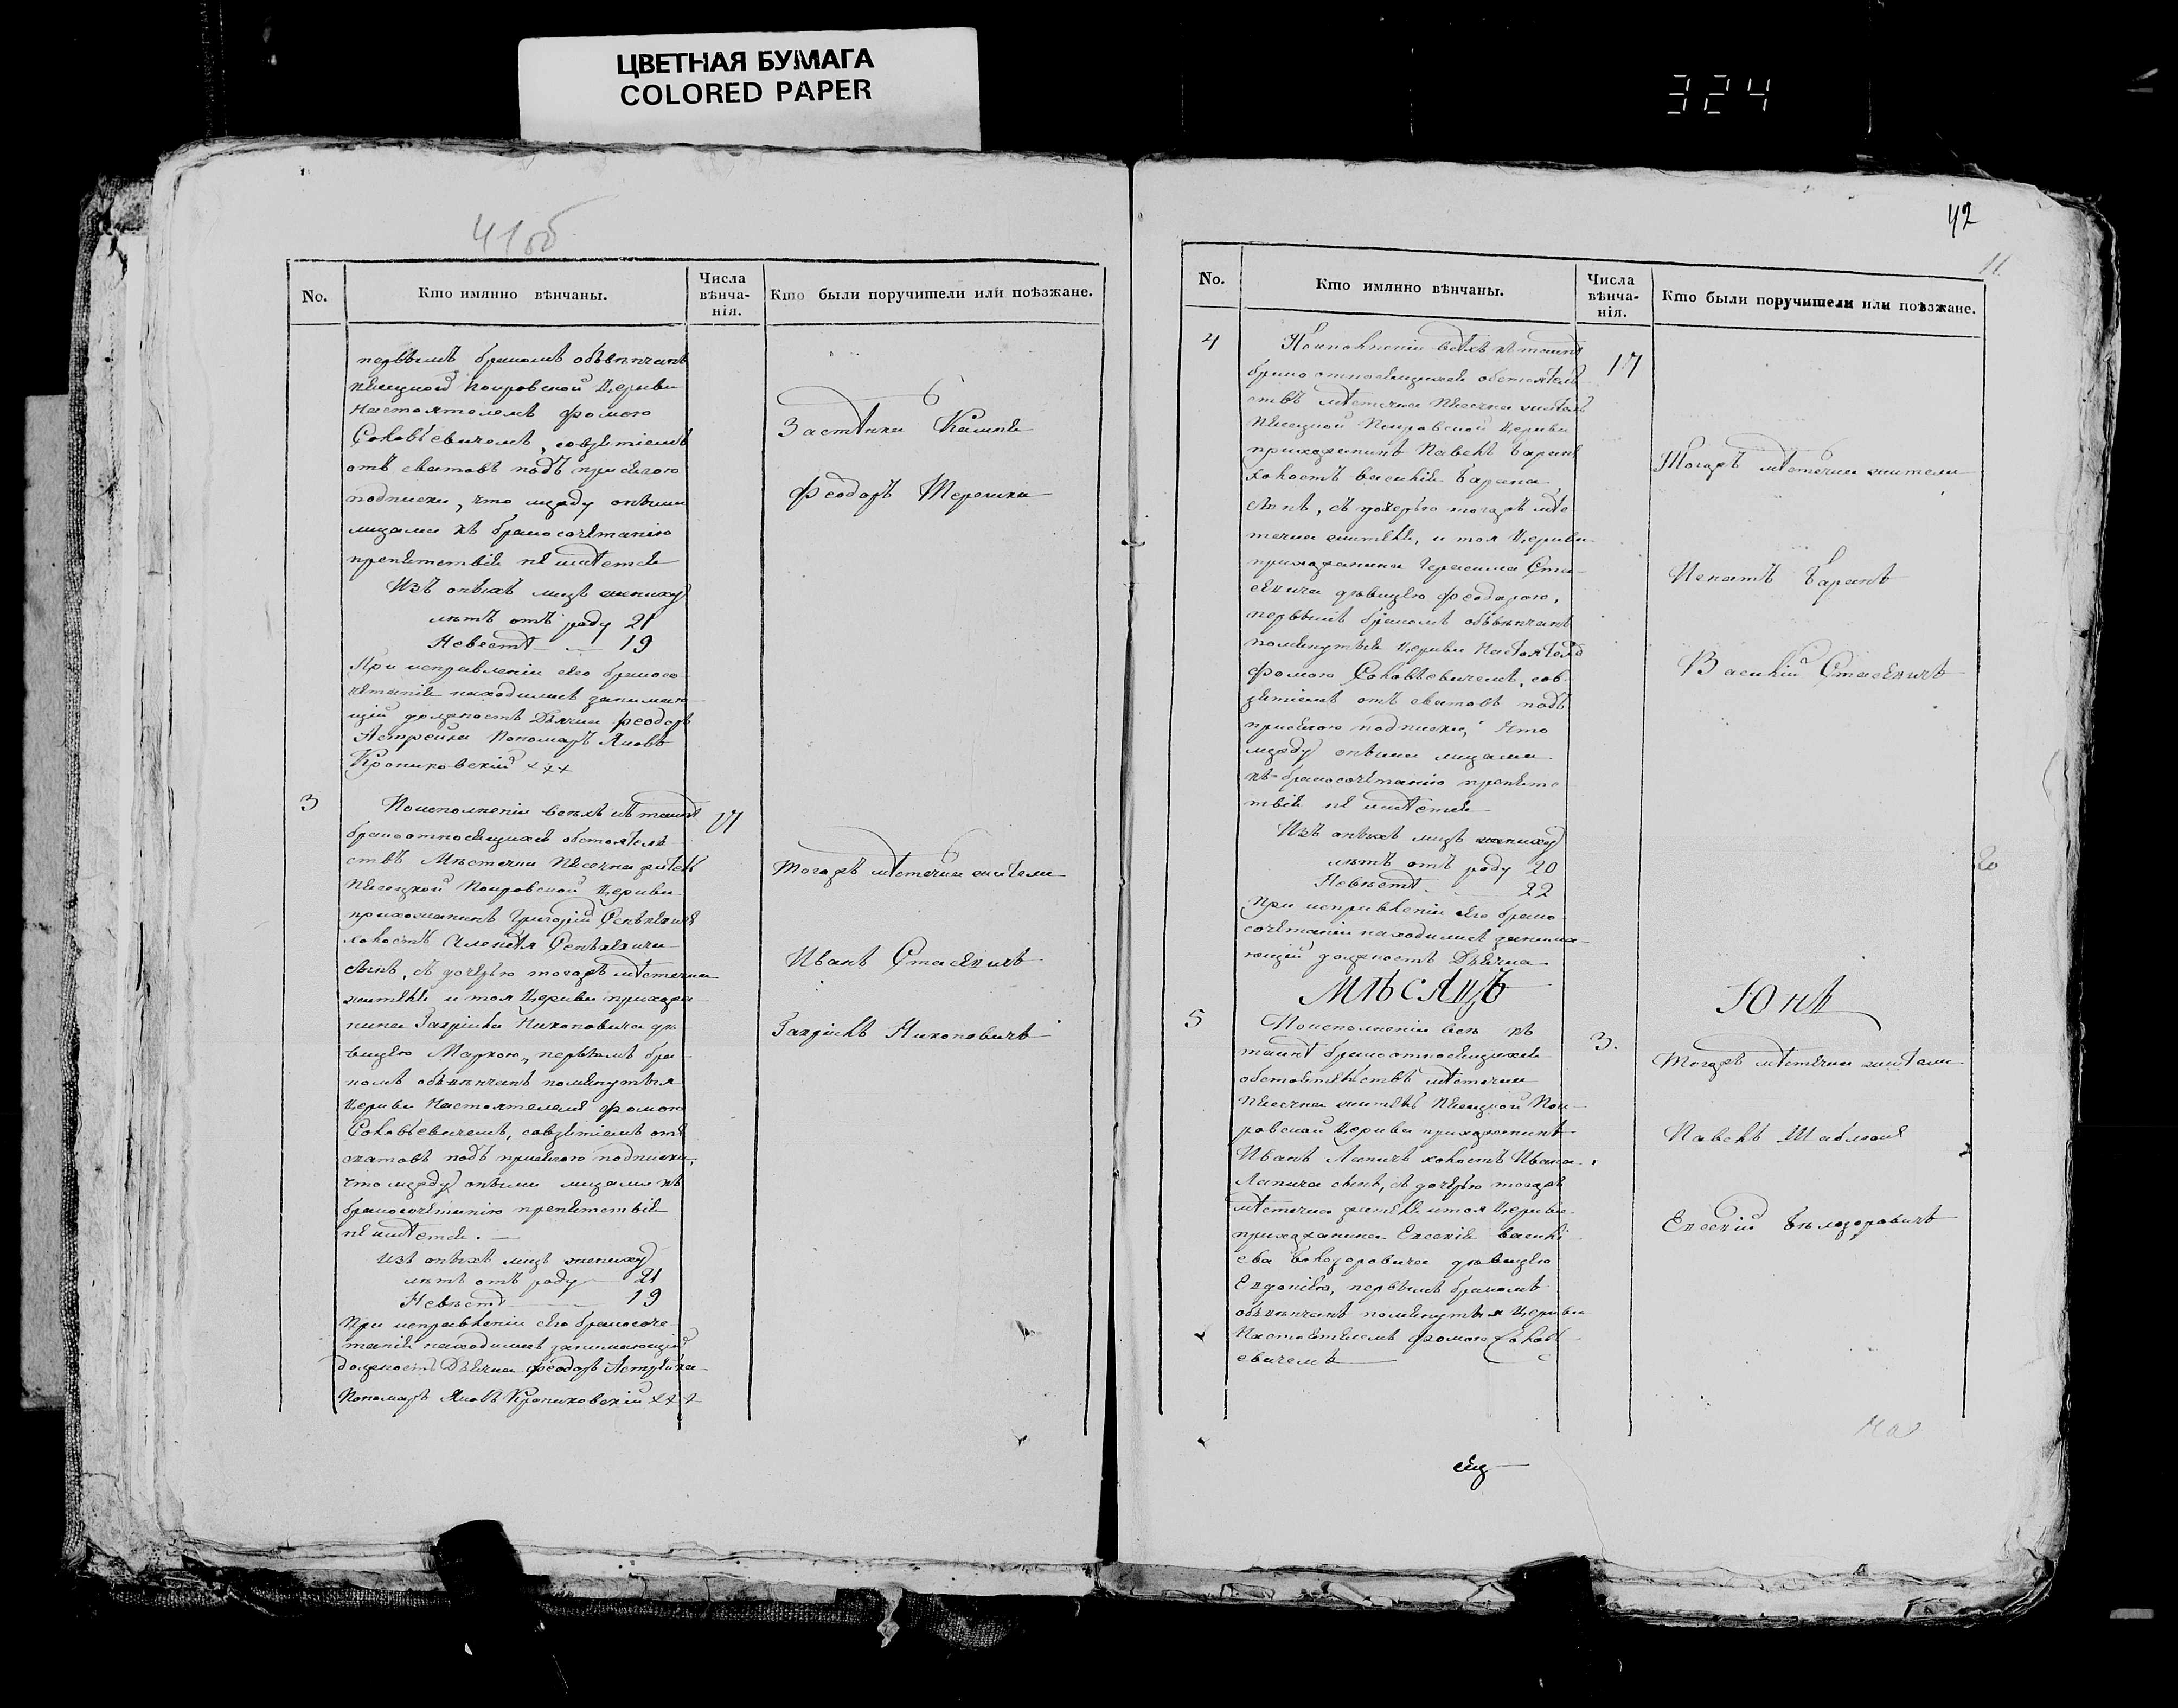 ЦВЕТНАЯ БУМАГА
COLORED PAPER
324
41об
No.
Кто имянно вѣнчаны.
Числа вѣнча-нія.
Кто были поручители или поѣзжане.
первымъ бракомъ обвѣнчанъ
Пѣсецкой Покровской Церкви
Настоятелемъ Фомою
Соловьевичемъ, совзятіемъ
отъ сватовъ подъ присягою
подписки, что между оными
лицами къ бракосочетанію
препятствія не имѣется
Изъ оныхъ лицъ жениху
лѣтъ отъ роду 21
Невѣстѣ 19
При исправленіи сего бракосо
четанія находились занимаю
щій должность Дьячка Феодоръ
Астрейка Пономарь Яковъ
Крониковскій +++
Застѣнка
Феодоръ Терешка
3
Поисполненіи всѣхъ къ таинѣ
брако относящихся обстоятель
ствъ Мѣстечка Пѣсечна житель
Пѣсецкой Покровской Церкви
прихожанинъ Григорій
холостъ
сынъ, съ дочерью тогожъ мѣстечка
жителя и тоя Церкви прихожа
нина Гавріила Никоновича дѣ
вицею Марѳою, первымъ бра
комъ обвѣнчанъ помянутыя
Церкви Настоятелемъ Фомою
Соловьевичемъ, совзятіемъ отъ
сватовъ подъ присягою подписки,
что между оными лицами къ
бракосочетанію препятствія
не имѣется.
Изъ оныхъ лицъ жениху
лѣтъ отъ роду 21
Невѣстѣ 19
При исправленіи сего бракосоче
танія находились занимающій
должность Дьячка Феодоръ Астрейка
Пономарь Яковъ Крониковскій +++
17
Тогожъ мѣстечка жители
Иванъ Стасевичъ
Гавріилъ Никоновичъ
42
11
No.
Кто имянно вѣнчаны.
Числа вѣнча-нія.
Кто были поручители или поѣзжане.
4
Поисполненіи всѣхъ къ таинѣ
брако относящихся обстоятель
ствъ мѣстечка Пѣсечна житель
Пѣсецкой Покровской Церкви
прихожанинъ Павелъ Баранъ
холостъ Василія Барана
сынъ, съ дочерью тогожъ мѣс
течка жителя, и тоя Церкви
прихожанина Герасима Ста
севича дѣвицею Феодорою,
первымъ бракомъ обвѣнчанъ
помянутыя Церкви Настоятель
Фомою Соловьевичемъ, сов
зятіемъ отъ сватовъ подъ
присягою подписки, что
между оными лицами
къ бракосочетанію препятс
твія не имѣется
Изъ оныхъ лицъ жениху
лѣтъ отъ роду 20
Невѣстѣ 22
При исправленіи сего брако
сочетанія находились занима
ющій должность Дьячка
17
Тогожъ мѣстечка жители
Игнатъ Баранъ
Василій Стасевичъ
МѢСЯЦЪ
Юнь
5
Поисполненіи всѣ къ
таинѣ брако относящихся
обстоятельствъ мѣстечка
Пѣсечна житель Пѣсецкой Пок
ровской Церкви прихожанинъ
Иванъ Лапичъ холостъ Ивана
Лапича сынъ, съ дочерью тогожъ
мѣстечка жителя и тоя Церкви
прихожанина Евсевія Василі
ева Бѣлозоровича дѣвицею
Евдокіею, первымъ бракомъ
обвѣнчанъ помянутыя Церкви
Настоятелемъ Фомою Соловь
евичемъ
3.
Тогожъ мѣстечка жители
Павелъ
Евсевій Бѣлозоровичъ